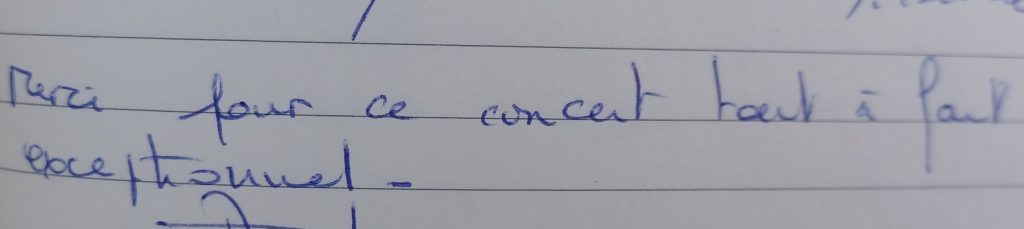 Merci pour ce concert tout à fait
exceptionnel -